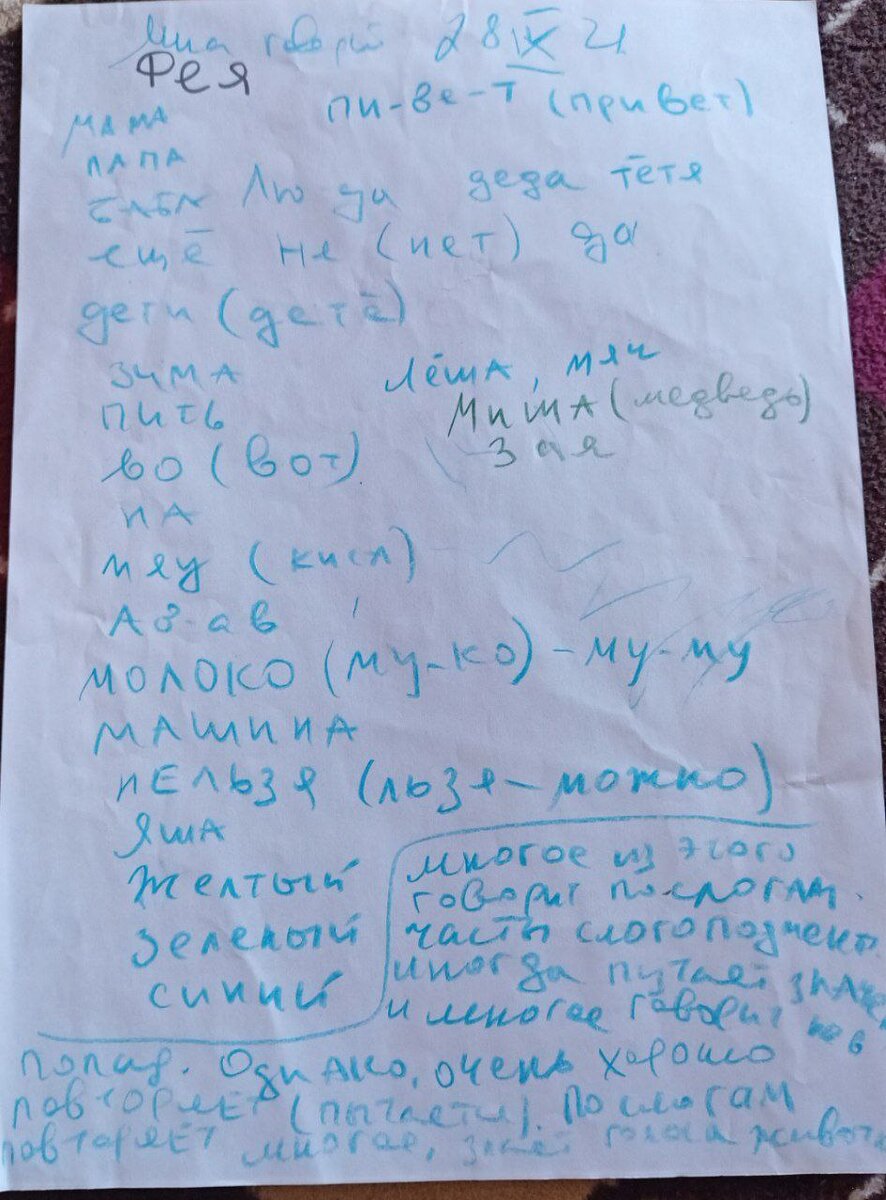 говорит 28 IX 21
Фея
пи-ве-т (привет)
МАМА
ПАПА
БАБА Люда деда тётя
ещё не (нет) да
дети (детё)
ЗИМА Лёша, мяч
ПИТЬ МИША (медведь)
во (вот) Зая
НА
мяу (киса)
Ав-ав
МОЛОКО (му-ко) - му-му
МАШИНА
НЕЛЬЗЯ (льзя - можно)
ЯША
Желтый
зеленый
синий
многое из этого
говорит по слогам.
часты слогоподмены
иногда путает
и многое говорит
попад. Однако, очень хорошо
повторяет (пытается). По слогам
повторяет многое, знает голоса